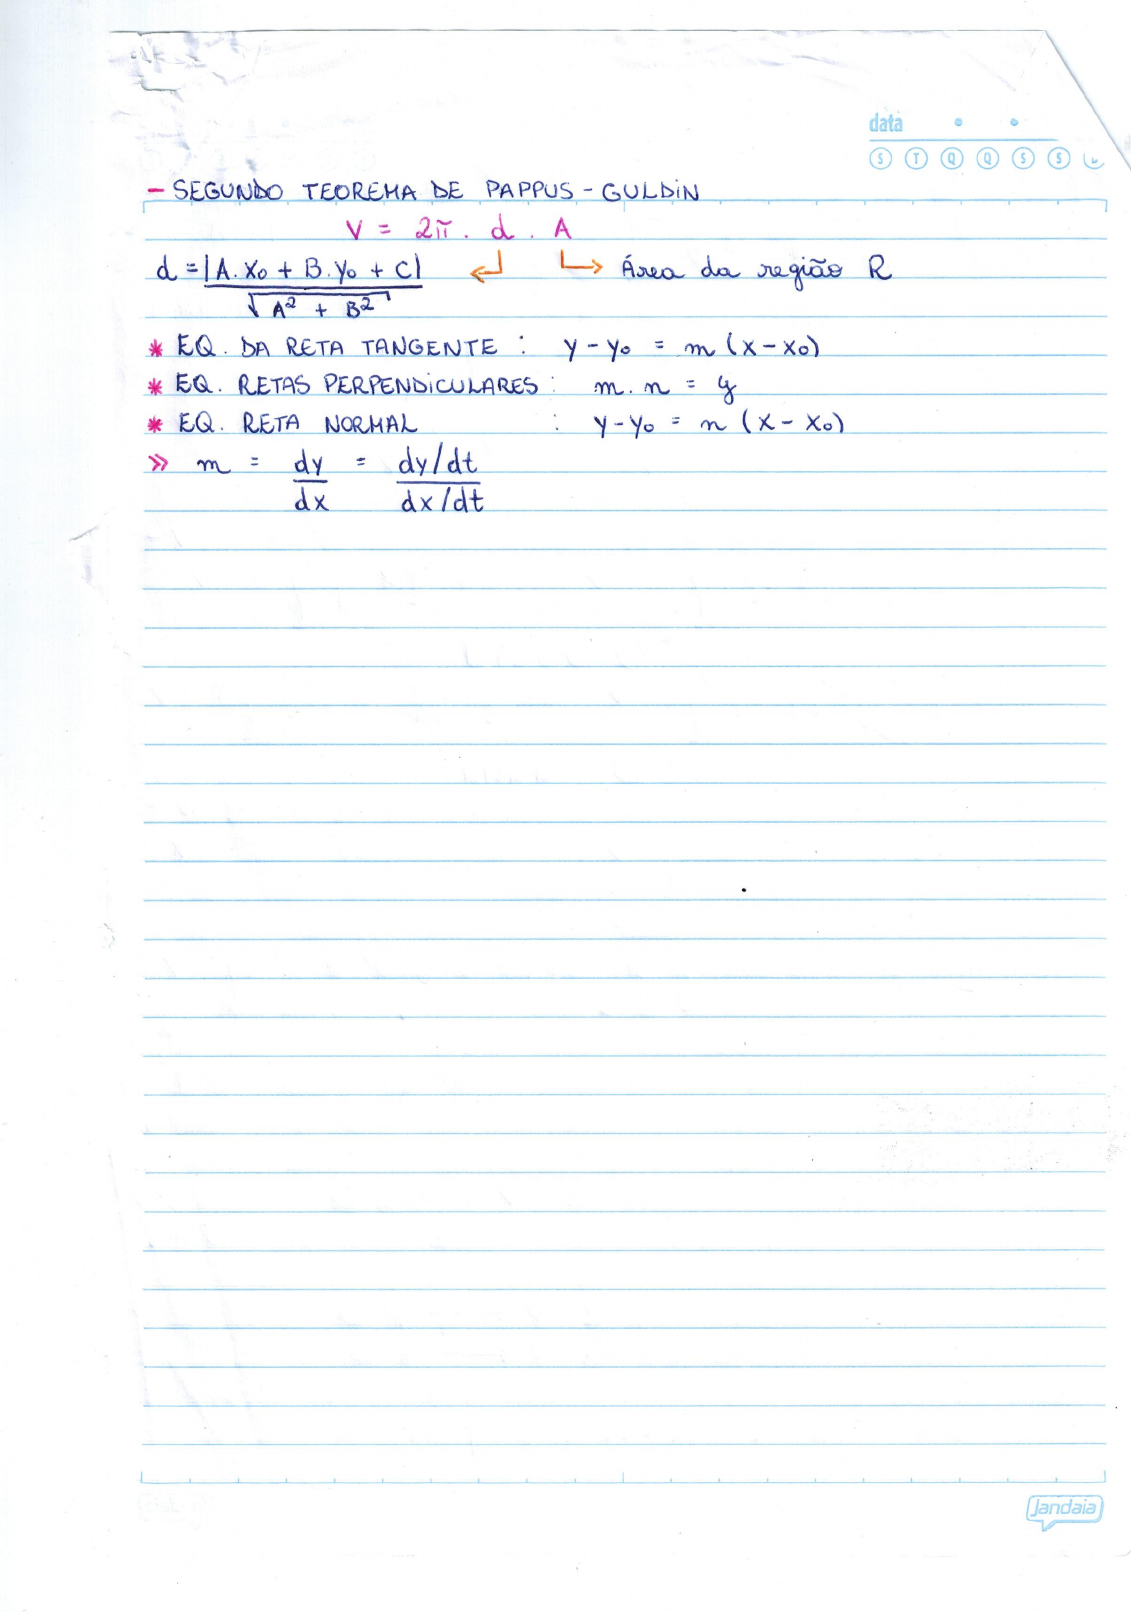 data
S T Q Q S S
- SEGUNDO TEOREMA DE PAPPUS - GULDIN
V = 2π . d . A
d = |A.x₀ + B.y₀ + C| / √A² + B² ↵ ↳ Área da região R
* EQ. DA RETA TANGENTE : y - y₀ = m (x - x₀)
* EQ. RETAS PERPENDICULARES : m . n = y
* EQ. RETA NORMAL : y - y₀ = n (x - x₀)
» m = dy/dx = dy/dt / dx/dt
jandaia